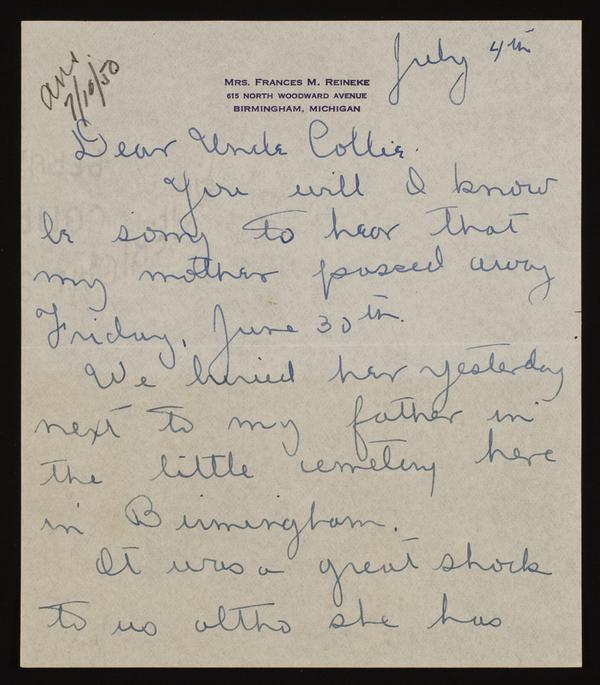 July 4th
ans.
7/10/50
MRS. FRANCES M. REINEKE
615 NORTH WOODWARD AVENUE
BIRMINGHAM, MICHIGAN
Dear Uncle Collie.
You will I know
be sorry to hear that
my mother passed away
Friday, June 30th.
We buried her yesterday
next to my father in
the little cemetery here
in Birmingham.
It was a great shock
to us altho she has